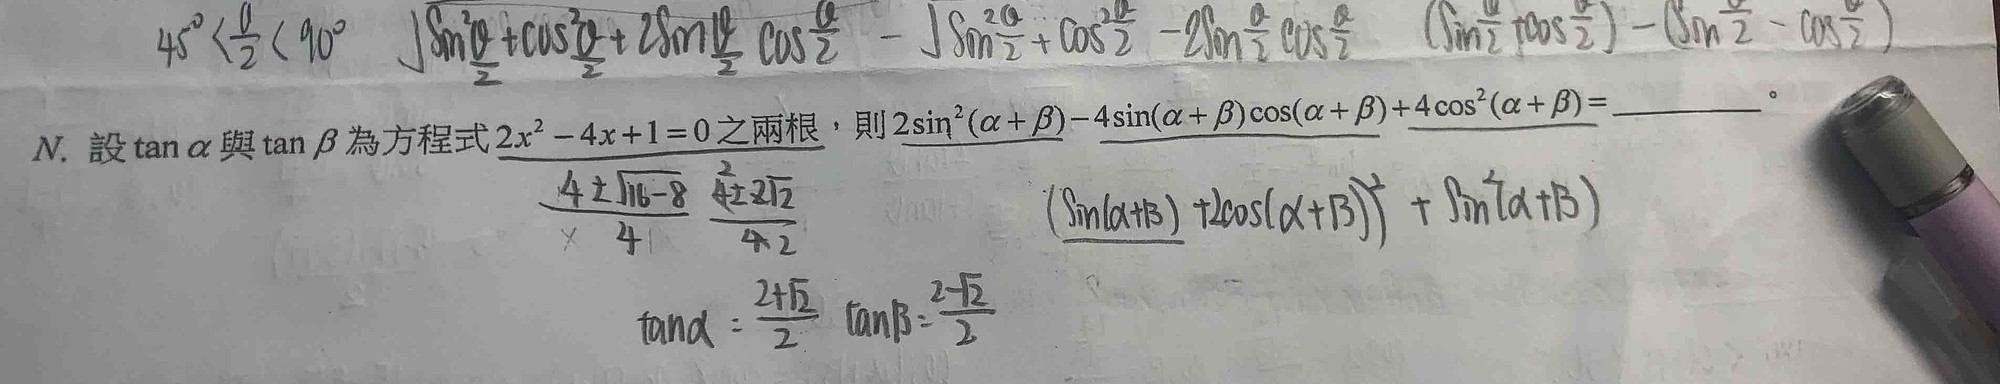 45° < θ/2 < 90° √(sin²θ/2 + cos²θ/2 + 2sinθ/2 cosθ/2) - √(sin²θ/2 + cos²θ/2 - 2sinθ/2 cosθ/2) (sinθ/2 + cosθ/2) - (sinθ/2 - cosθ/2)
N. 設 tan α 與 tan β 為方程式 2x² - 4x + 1 = 0 之兩根，則 2sin²(α + β) - 4sin(α + β)cos(α + β) + 4cos²(α + β) = ________。
(4 ± √(16-8))/4 (2 ± √2)/2 (sin(α+β) + 2cos(α+β))² + sin²(α+β)
tanα = (2+√2)/2 tanβ = (2-√2)/2